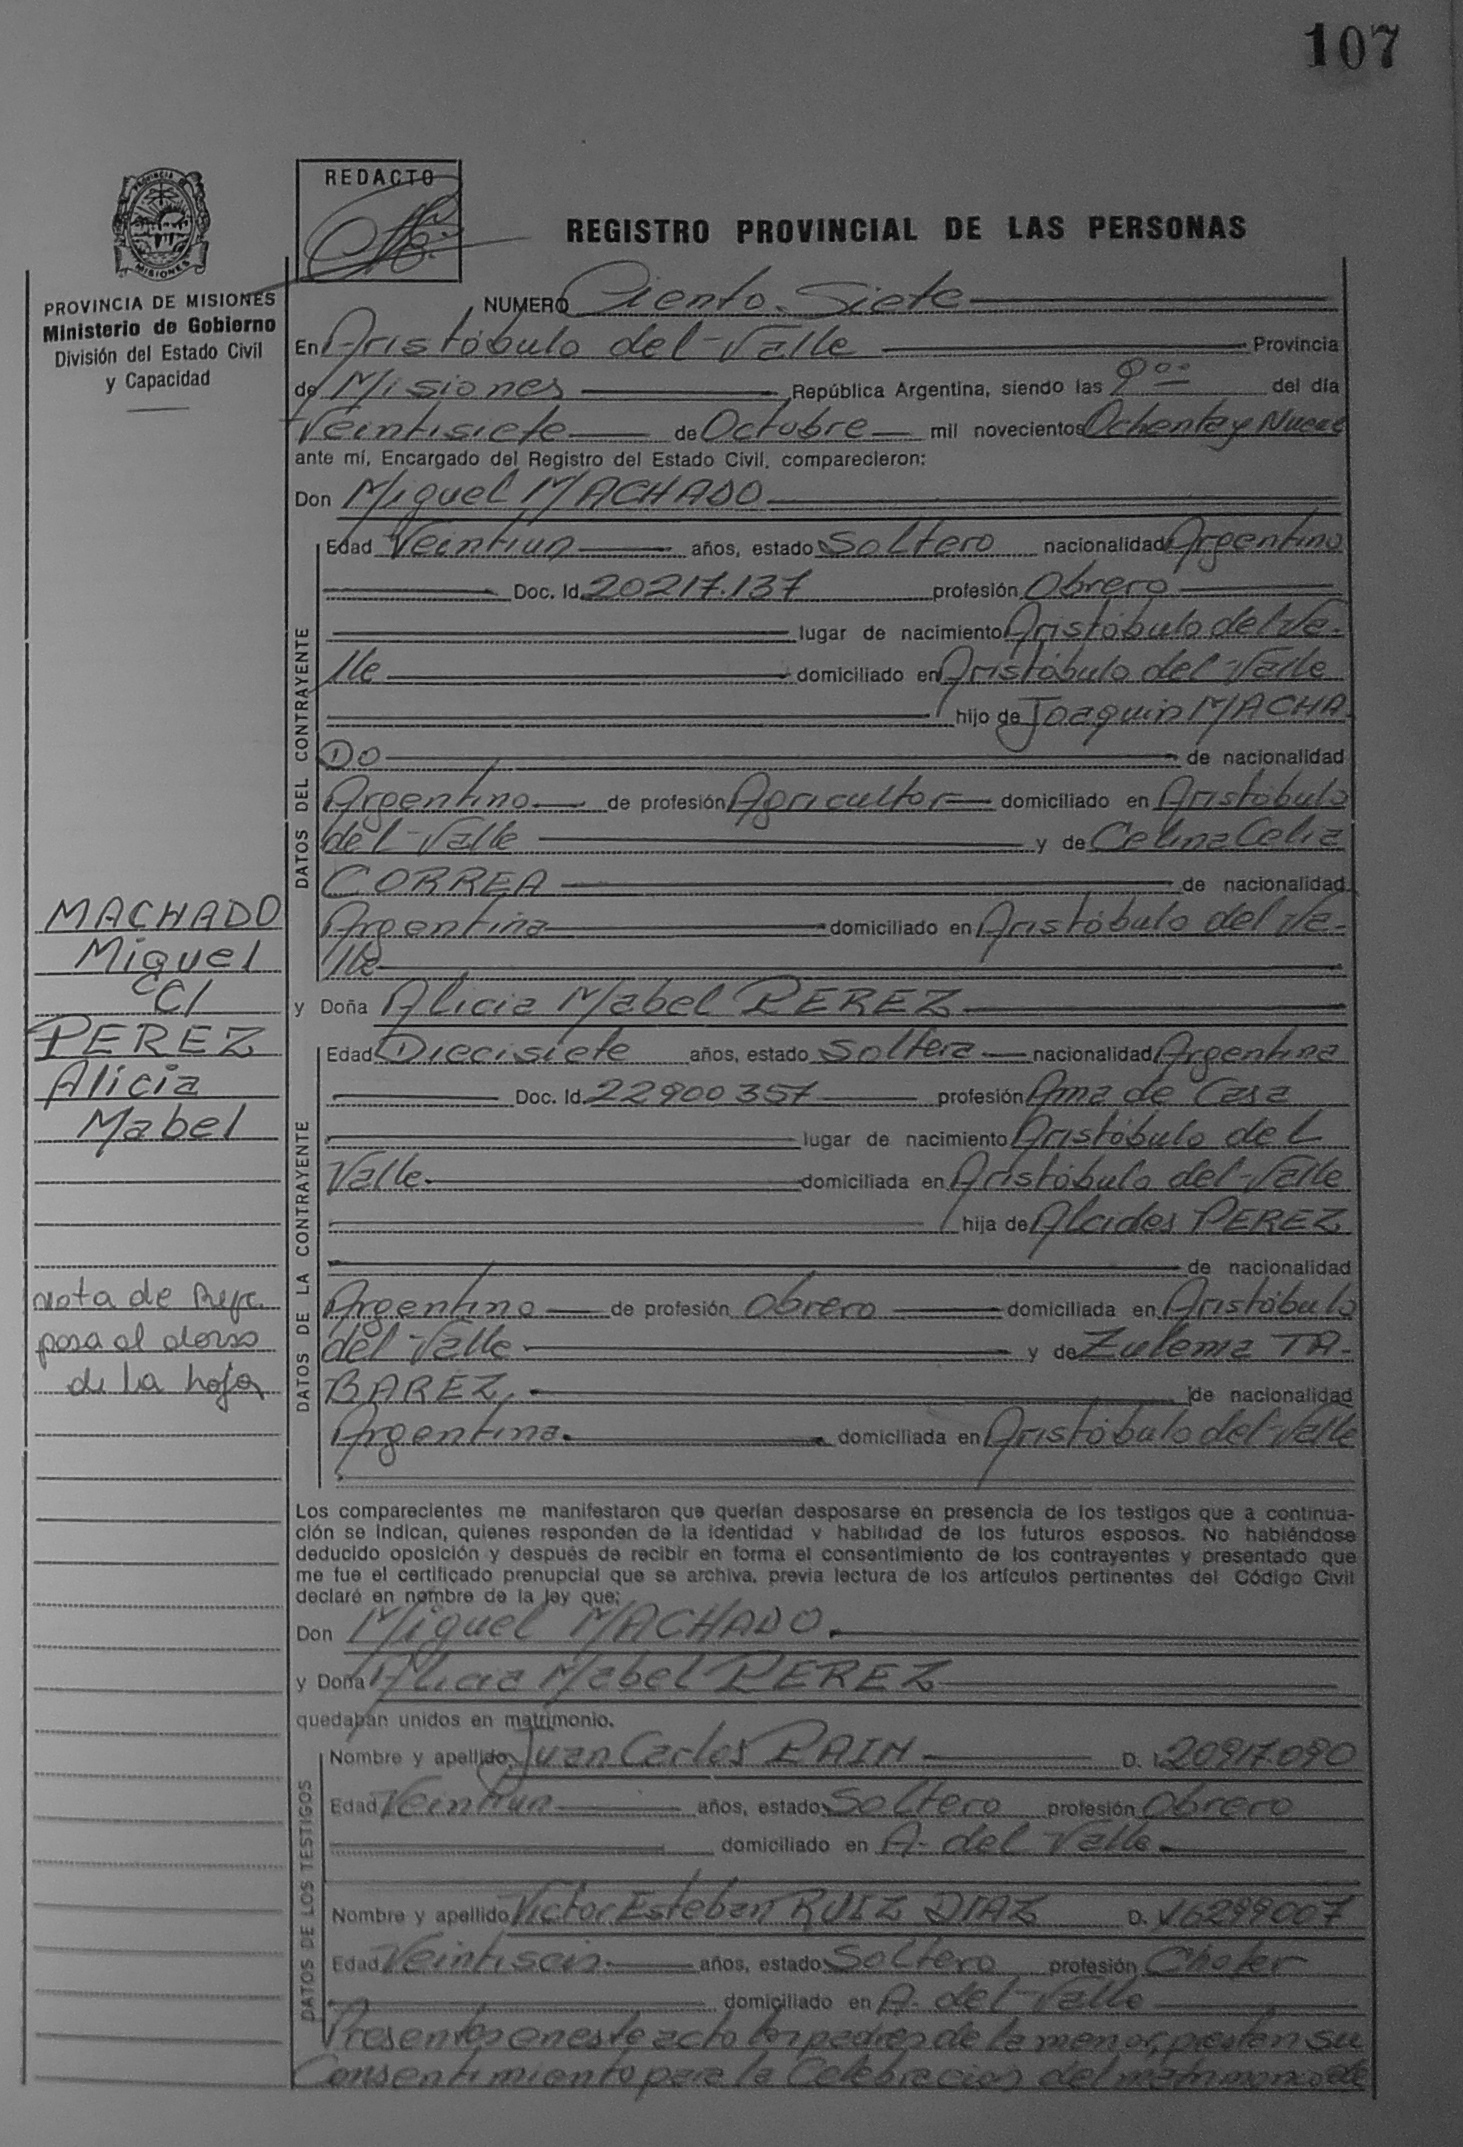 107
PROVINCIA DE
MISIONES
REDACTO
REGISTRO PROVINCIAL DE LAS PERSONAS
PROVINCIA DE MISIONES
Ministerio de Gobierno
División del Estado Civil
y Capacidad
NUMERO Ciento Siete
En Aristóbulo del Valle Provincia
de Misiones República Argentina, siendo las 9 00 del día
Veintisiete de Octubre mil novecientos Ochenta y Nueve
ante mí, Encargado del Registro del Estado Civil, comparecieron:
Don Miguel MACHADO
DATOS DEL CONTRAYENTE
Edad Veintiun años, estado Soltero nacionalidad Argentino
Doc. Id. 20217.137 profesión Obrero
lugar de nacimiento Aristóbulo del Va-
lle domiciliado en Aristóbulo del Valle
hijo de Joaquin MACHA
DO de nacionalidad
Argentino de profesión Agricultor domiciliado en Aristóbulo
del Valle y de Celina Celia
CORREA de nacionalidad
Argentina domiciliado en Aristóbulo del Va-
lle
MACHADO
Miguel
C/
PEREZ
Alicia
Mabel
y Doña Alicia Mabel PEREZ
DATOS DE LA CONTRAYENTE
Edad Diecisiete años, estado Soltera nacionalidad Argentina
Doc. Id. 22900357 profesión Ama de Casa
lugar de nacimiento Aristóbulo del
Valle domiciliada en Aristóbulo del Valle
hija de Alcides PEREZ
de nacionalidad
Argentino de profesión Obrero domiciliada en Aristóbulo
del Valle y de Zulema TA-
BAREZ de nacionalidad
Argentina domiciliada en Aristóbulo del Valle
nota de Refe.
pasa al dorso
de la hoja
Los comparecientes me manifestaron que querían desposarse en presencia de los testigos que a continua-
ción se indican, quienes responden de la identidad y habilidad de los futuros esposos. No habiéndose
deducido oposición y después de recibir en forma el consentimiento de los contrayentes y presentado que
me fue el certificado prenupcial que se archiva, previa lectura de los artículos pertinentes del Código Civil
declaré en nombre de la ley que:
Don Miguel MACHADO
y Doña Alicia Mabel PEREZ
quedaban unidos en matrimonio.
DATOS DE LOS TESTIGOS
Nombre y apellido Juan Carlos PAIM D. I. 20917.090
Edad Veintiun años, estado Soltero profesión Obrero
domiciliado en A. del Valle
Nombre y apellido Victor Esteban RUIZ DIAZ D. I. 16299007
Edad Veintiseis años, estado Soltero profesión Chofer
domiciliado en A. del Valle
Presentes en este acto los padres de la menor, prestan su
Consentimiento para la Celebracion del matrimonio de